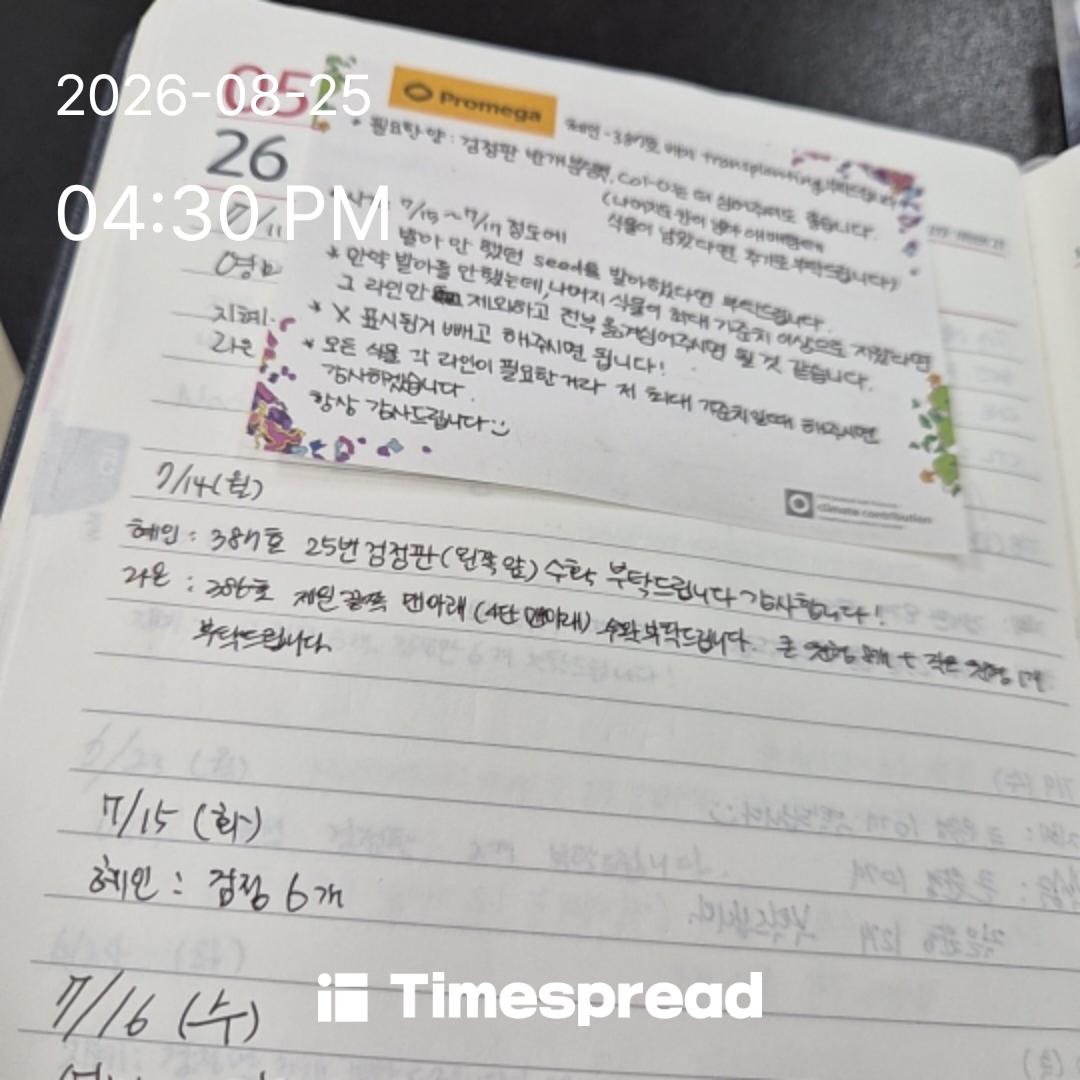 2026-08-25
04:30 PM
05
26
Promega
혜인 - 387호 배지 transplanting 부탁드립니다
* 필요한 양 : 검정판 번개 Col-0는 더 심어주셔도 좋습니다.
식물이 남았다면 추가로 부탁드립니다)
7/15 ~ 7/17 정도에
발아 안 했던 seed를 발아했다면 부탁드립니다.
* 만약 발아를 안했는데, 나머지 식물이 최대 기준치 이상으로 자랐다면
그 라인만 제외하고 전부 옮겨심어주시면 될 것 같습니다.
* X 표시된거 빼고 해주시면 됩니다!
* 모든 식물 각 라인이 필요한거라 저 최대 기준치일때 해주시면
감사하겠습니다.
항상 감사드립니다
climate contribution
7/11
지혜
라온
7/14(월)
혜인 : 387호 25번 검정판(왼쪽 앞) 수확 부탁드립니다 감사합니다!
라온 : 386호 제일 끝쪽 맨아래 (4단 맨아래) 수확 부탁드립니다. 큰 원형 + 작은 원형
부탁드립니다.
7/15 (화)
혜인 : 검정 6개
7/16 (수)
Timespread